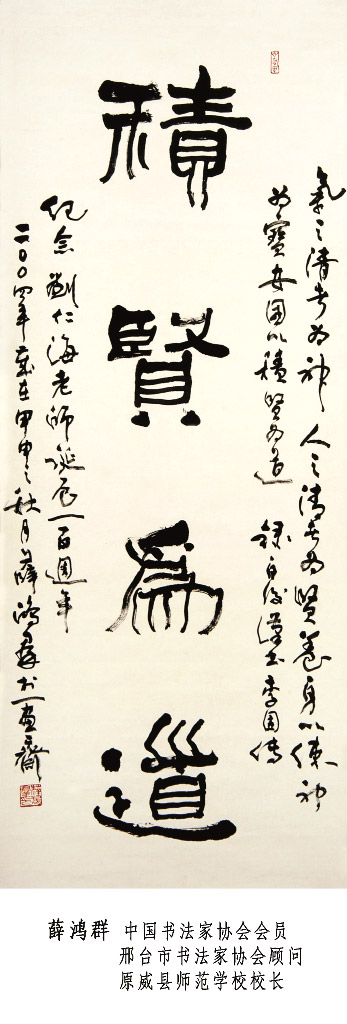 氣之清者为神人之清者为賢養身以練神
为寶安國以積賢为道 錄自後漢书李固傳
積賢爲道
紀念劉仁海老師誕辰一百週年
二〇〇四年歲在甲申之秋月薛鴻群书一画齋
薛鸿群 中国书法家协会会员
邢台市书法家协会顾问
原威县师范学校校长